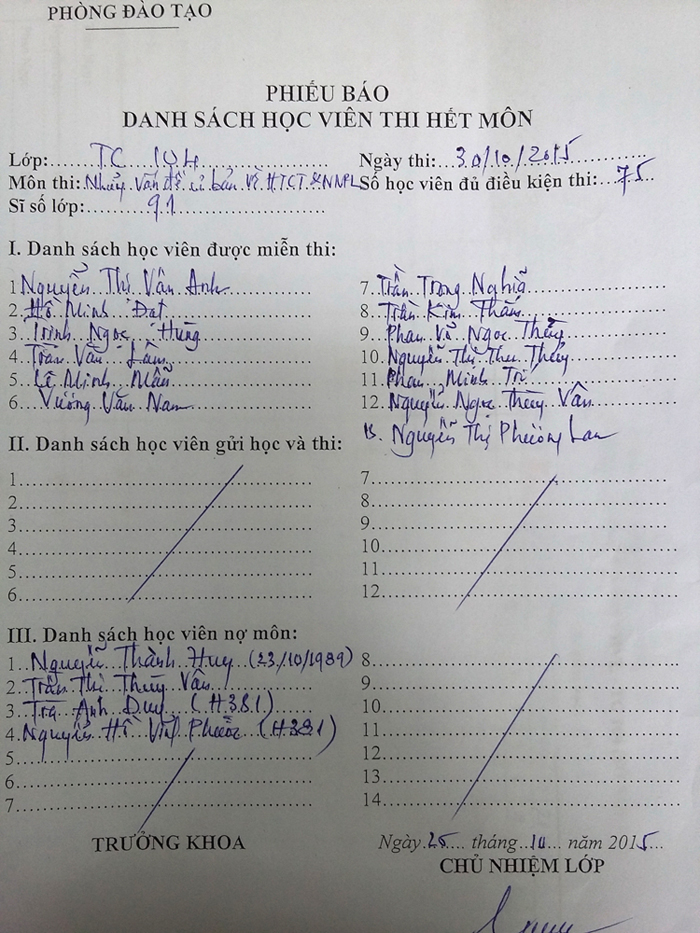 PHÒNG ĐÀO TẠO
PHIẾU BÁO
DANH SÁCH HỌC VIÊN THI HẾT MÔN
Lớp: TC 104
Ngày thi: 30/10/2015
Môn thi: Những Vấn đề cơ bản về HTCT & NNPL
Số học viên đủ điều kiện thi: 75
Sĩ số lớp: 91
I. Danh sách học viên được miễn thi:
1 Nguyễn Thị Vân Anh
2. Hồ Minh Đạt
3. Trịnh Ngọc Hùng
4. Trần Văn Lâm
5. Lê Minh Mẫn
6. Vương Văn Nam
7. Trần Trọng Nghĩa
8. Trần Kim Thấm
9. Phan Võ Ngọc Thủy
10. Nguyễn Thị Thu Thủy
11. Phan Minh Trí
12. Nguyễn Ngọc Thùy Vân
13. Nguyễn Thị Phương Lan
II. Danh sách học viên gửi học và thi:
1
2
3
4
5
6
7
8
9
10
11
12
III. Danh sách học viên nợ môn:
1. Nguyễn Thành Huy (23/10/1989)
2. Trần Thị Thùy Vân
3. Trà Anh Duy (H381)
4. Nguyễn Hồ Vĩnh Phước (H381)
5
6
7
8
9
10
11
12
13
14
TRƯỞNG KHOA
Ngày 26 tháng 10 năm 2015
CHỦ NHIỆM LỚP